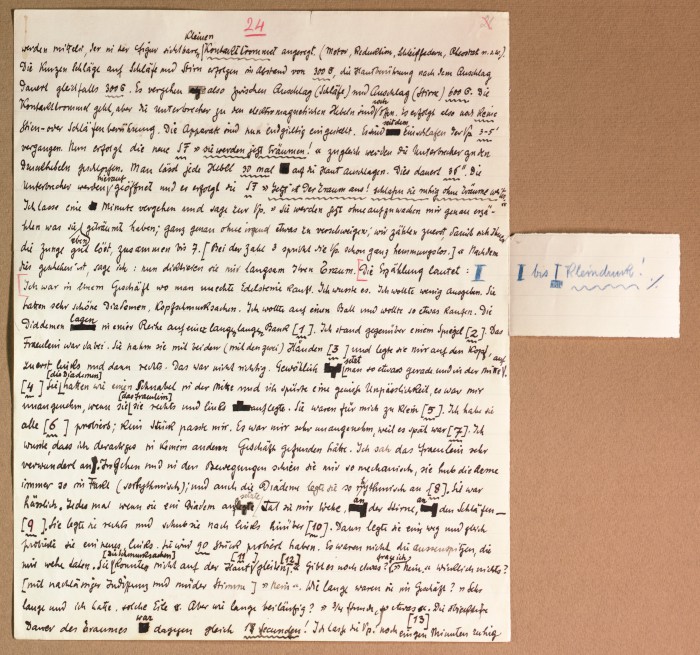 24
kleinen
werden mittels, der in der Figur sichtbaren Kontakttrommel angeregt. (Motor, Reduktion, Schleiffedern, Rheostat u.s.w.).
Die kurzen Schläge auf Schläfe und Stirn erfolgen im Abstand von 300 σ, die Hautberührung nach dem Anschlag
dauert gleichfalls 300 σ. Es vergehen also zwischen Anschlag (Schläfe) und Anschlag (Stirne) 600 σ. Die
Kontakttrommel geht, aber die Unterbrecher zu den elektromagnetischen Hebeln sind noch offen. Es erfolgt also noch keine
Stirn- oder Schläfenberührung. Die Apparate sind nun endgiltig eingestellt. Es sind seit dem Einschlafen der Vp. 3-5'
vergangen. Nun erfolgt die neue SF » sie werden jetzt träumen! « zugleich werden die Unterbrecher zu den
Doppelhebeln geschlossen. Man lässt jede Hebel 30 mal auf die Haut ausschlagen. Dies dauert 36". Die
Unterbrecher werden hierauf geöffnet und es erfolgt die SF » Jetzt ist der Traum aus! schlafen sie ruhig ohne Träume weiter «
Ich lasse eine Minute vergehen und sage zur Vp. » Sie werden jetzt ohne aufzuwachen mir genau erzä-
hlen was sie geträumt haben, ganz genau ohne irgend etwas zu verschweigen; wir zählen zuerst, damit sich Ihnen
die Zunge aber gut löst, zusammen bis 7. [Bei der Zahl 3 spricht die Vp. schon ganz hemmungslos.] « Nachdem
dies geschehen ist, sage ich: nun diktieren sie mir langsam Ihren Traum. [Die Erzählung lautet: I
Ich war in einem Geschäft wo man unechte Edelsteine kauft. Ich wusste es. Ich wollte wenig ausgeben. Sie
hatten sehr schöne Diademen, Kopfschmucksachen. Ich wollte auf einen Ball und wollte so etwas kaufen. Die
Diademen lagen in einer Reihe auf einer langen, langen Bank [1]. Ich stand gegenüber einem Spiegel [2]. Das
Fraeulein war dabei. Sie nahm sie mit beiden (mit den zwei) Händen [3] und legte sie mir auf den Kopf auf
zuerst links und dann rechts. Das war nicht richtig. Gewöhnlich setzt man so etwas gerade und in der Mitte
[4] Sie [die Diademen] hatten wie einen Schnabel in der Mitte und ich spürte eine gewisse Unpässlichkeit, es war mir
unangenehm, wenn sie [das Fraeulein] sie rechts und links auflegte. Sie waren für mich zu klein [5]. Ich habe sie
alle [6] probiert; kein Stück passte mir. Es war mir sehr unangenehm, weil es spät war [7]. Ich
wusste, dass ich derartiges in keinem anderen Geschäft gefunden hätte. Ich sah das Fraeulein sehr
verwundert an. Im Gehen und in den Bewegungen schien sie mir so mechanisch, sie hub die Arme
immer so im Takt (so rythmisch); und auch die Diademe legte sie so rythmisch an [8]. Sie war
hässlich. Jedes mal wenn sie ein Diadem anlegte, tat sie mir wehe, an der Stirne, an den Schläfen —
[9]. Sie legte sie rechts und schub sie nach links hinüber [10]. Dann legte sie ein weg und gleich
probierte sie ein neues, links. Sie wird 90 Stück probiert haben. Es waren nicht die aussenspitzen, die
mir wehe taten. Sie [die Schmucksachen] konnten nicht auf der Haut [11] gleiten [12]. Gibt es noch etwas? (fraglich) » Nein « Wirklich nichts?
[mit nachlässiger Indignung und müder Stimme] » Nein «. Wie lange waren sie im Geschäft? » Sehr
lange und ich hatte, solche Eile «. Aber wie lange beiläufig? » ¾ Stunde, so etwas «. Die objektive
Dauer des Traumes war dagegen gleich 18 Secunden! Ich lasse die Vp. noch einigen Minuten ruhig [13]
I bis I Kleindruck!